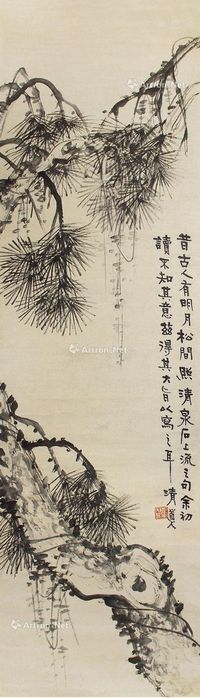 昔古人有明月松間照清泉石上流之句余初
讀不知其意茲得其大旨以寫之耳 清道人
Artron.Net
Artron.Net